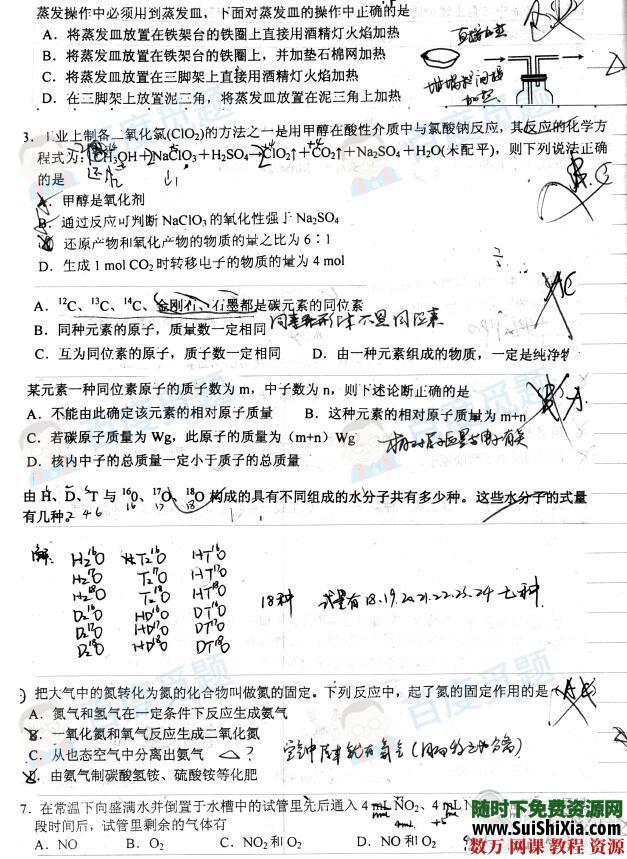 蒸发操作中必须用到蒸发皿，下面对蒸发皿的操作中正确的是
A．将蒸发皿放置在铁架台的铁圈上直接用酒精灯火焰加热
B．将蒸发皿放置在铁架台的铁圈上，并加垫石棉网加热
C．将蒸发皿放置在三脚架上直接用酒精灯火焰加热
D．在三脚架上放置泥三角，将蒸发皿放置在泥三角上加热
3．工业上制备二氧化氯(ClO₂)的方法之一是用甲醇在酸性介质中与氯酸钠反应，其反应的化学方
程式为：CH₃OH＋NaClO₃＋H₂SO₄→ClO₂↑＋CO₂↑＋Na₂SO₄＋H₂O(未配平)，则下列说法正确
的是
A．甲醇是氧化剂
B．通过反应可判断 NaClO₃的氧化性强于 Na₂SO₄
还原产物和氧化产物的物质的量之比为 6∶1
D．生成 1 mol CO₂时转移电子的物质的量为 4 mol
A．¹²C、¹³C、¹⁴C、金刚石、石墨都是碳元素的同位素
B．同种元素的原子，质量数一定相同
C．互为同位素的原子，质子数一定相同 D．由一种元素组成的物质，一定是纯净
某元素一种同位素原子的质子数为 m，中子数为 n，则下述论断正确的是
A．不能由此确定该元素的相对原子质量 B．这种元素的相对原子质量为 m+n
C．若碳原子质量为 Wg，此原子的质量为（m+n）Wg
D．核内中子的总质量一定小于质子的总质量
由 H、D、T 与 ¹⁶O、¹⁷O、¹⁸O 构成的具有不同组成的水分子共有多少种。这些水分子的式量
有几种。
H₂¹⁶O T₂¹⁶O HT¹⁶O
H₂¹⁷O T₂¹⁷O HT¹⁷O
H₂¹⁸O T₂¹⁸O HT¹⁸O
D₂¹⁶O HD¹⁶O DT¹⁶O
D₂¹⁷O HD¹⁷O DT¹⁷O
D₂¹⁸O HD¹⁸O DT¹⁸O
18种 式量有18.19.20.21.22.23.24 七种
把大气中的氮转化为氮的化合物叫做氮的固定。下列反应中，起了氮的固定作用的是
A．氮气和氢气在一定条件下反应生成氨气
B．一氧化氮和氧气反应生成二氧化氮
C．从也态空气中分离出氨气
由氨气制碳酸氢铵、硫酸铵等化肥
7．在常温下向盛满水并倒置于水槽中的试管里先后通入 4 mL NO₂、4 mL
段时间后，试管里剩余的气体有
A．NO B．O₂ C．NO₂ 和 O₂ D．NO 和 O₂
百度觅题
随时下免费资源网
www.SuiShiXia.com
数万 网课 教程 资源